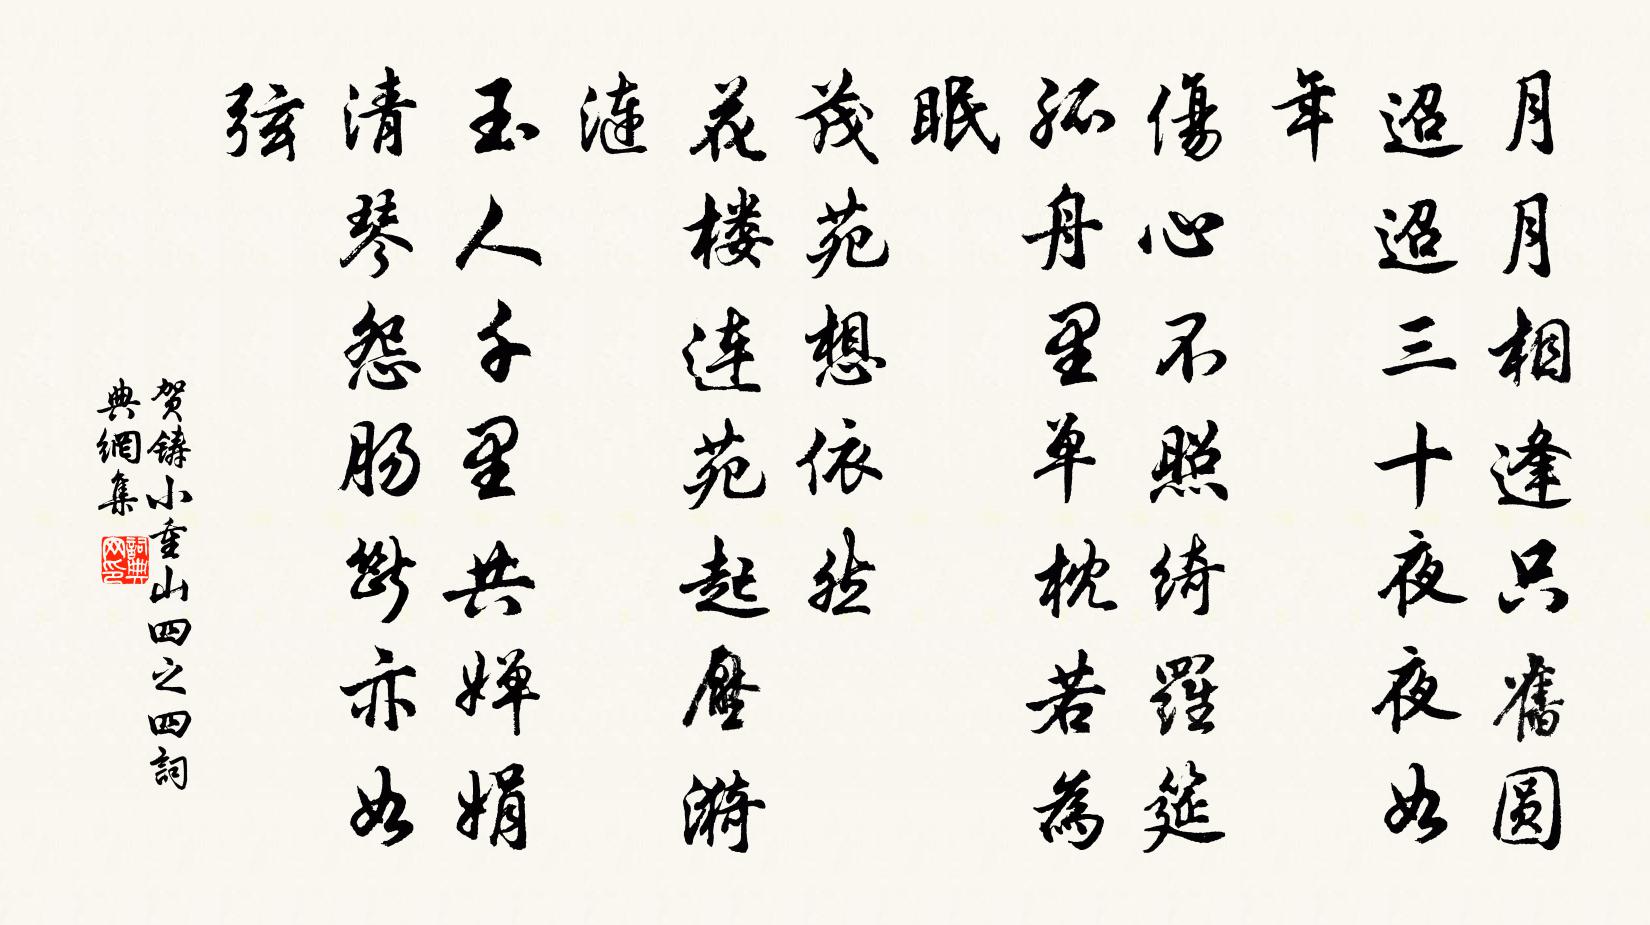 月月相逢只舊圆
迢迢三十夜夜如
年
傷心不照綺羅筵
孤舟里单枕若為
眠
茂苑想依然
花楼连苑起壓漪
漣
玉人千里共婵娟
清琴怨肠斷亦如
弦
贺鑄小重山四之四詞
典網集
詞典网印